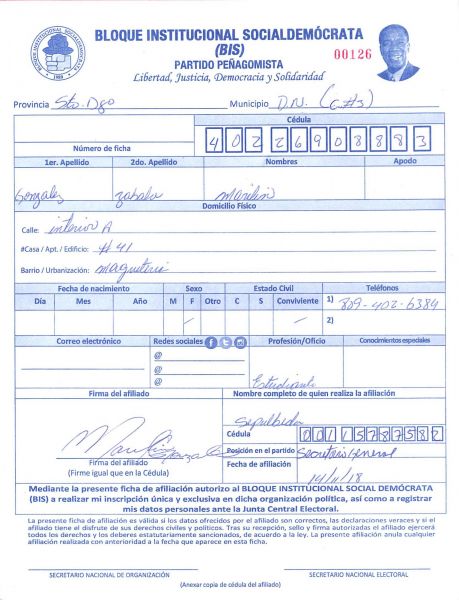 BLOQUE INSTITUCIONAL SOCIALDEMÓCRATA
(BIS)
PARTIDO PEÑAGOMISTA
Libertad, Justicia, Democracia y Solidaridad
BLOQUE INSTITUCIONAL SOCIALDEMOCRATA
BIS
00126
Provincia Sto. Dgo Municipio D.N. (C#3)
Cédula
Número de ficha 40226908883
1er. Apellido 2do. Apellido Nombres Apodo
Gonzalez zabala Marilin
Domicilio Físico
Calle: interior A
#Casa / Apt. / Edificio: #41
Barrio / Urbanización:
Fecha de nacimiento Sexo Estado Civil Teléfonos
Día Mes Año M F Otro C S Conviviente 1) 809-402-6384
2)
Correo electrónico Redes sociales Profesión/Oficio Conocimientos especiales
@
@
@ Estudiante
Firma del afiliado Nombre completo de quien realiza la afiliación
Sepulbeda
Cédula 00115787587
Posición en el partido Secretario General
Fecha de afiliación 19/11/18
Firma del afiliado
(Firme igual que en la Cédula)
Mediante la presente ficha de afiliación autorizo al BLOQUE INSTITUCIONAL SOCIAL DEMÓCRATA
(BIS) a realizar mi inscripción única y exclusiva en dicha organización política, así como a registrar
mis datos personales ante la Junta Central Electoral.
La presente ficha de afiliación es válida si los datos ofrecidos por el afiliado son correctos, las declaraciones veraces y si el
afiliado tiene el disfrute de sus derechos civiles y políticos. Tras su recepción, sello y firma autorizados el afiliado ejercerá
todos los derechos y los deberes estatutariamente sancionados, de acuerdo a la ley. La presente afiliación anula cualquier
afiliación realizada con anterioridad a la fecha que aparece en esta ficha.
SECRETARIO NACIONAL DE ORGANIZACIÓN SECRETARIO NACIONAL ELECTORAL
(Anexar copia de cédula del afiliado)